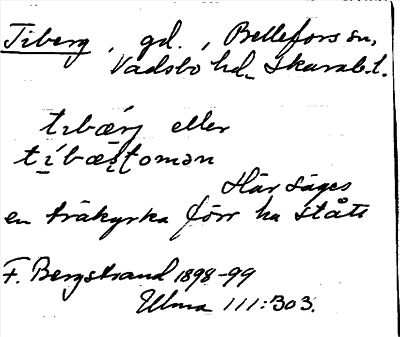 Tiberg, gd., Bellefors sn,
Vadsbo hd. Skarab. l.
tibærj eller
tíbæṛtomən
Här säges
en träkyrka förr ha stått
F. Bergstrand 1898-99
Ulma 111:303.